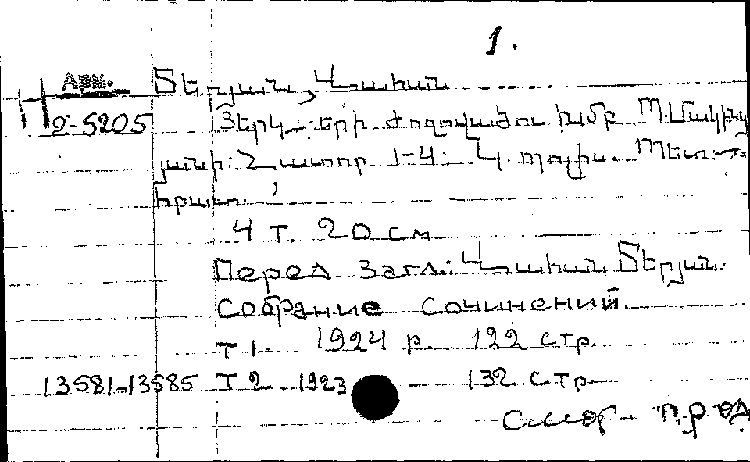 1.
Арм. Տերյան, Վահան
2-5205 Երկերի ժողովածու խմբ Պ. Մակինց
յանի: Հատոր 1-4: Կ. պոլիս.
հրատ.
4 т. 20 см
Перед загл.: Վահան Տերյան.
Собрание сочинений.
т 1. 1924 р. 192 стр
13581-13585 Т 2 1923 - 132 стр